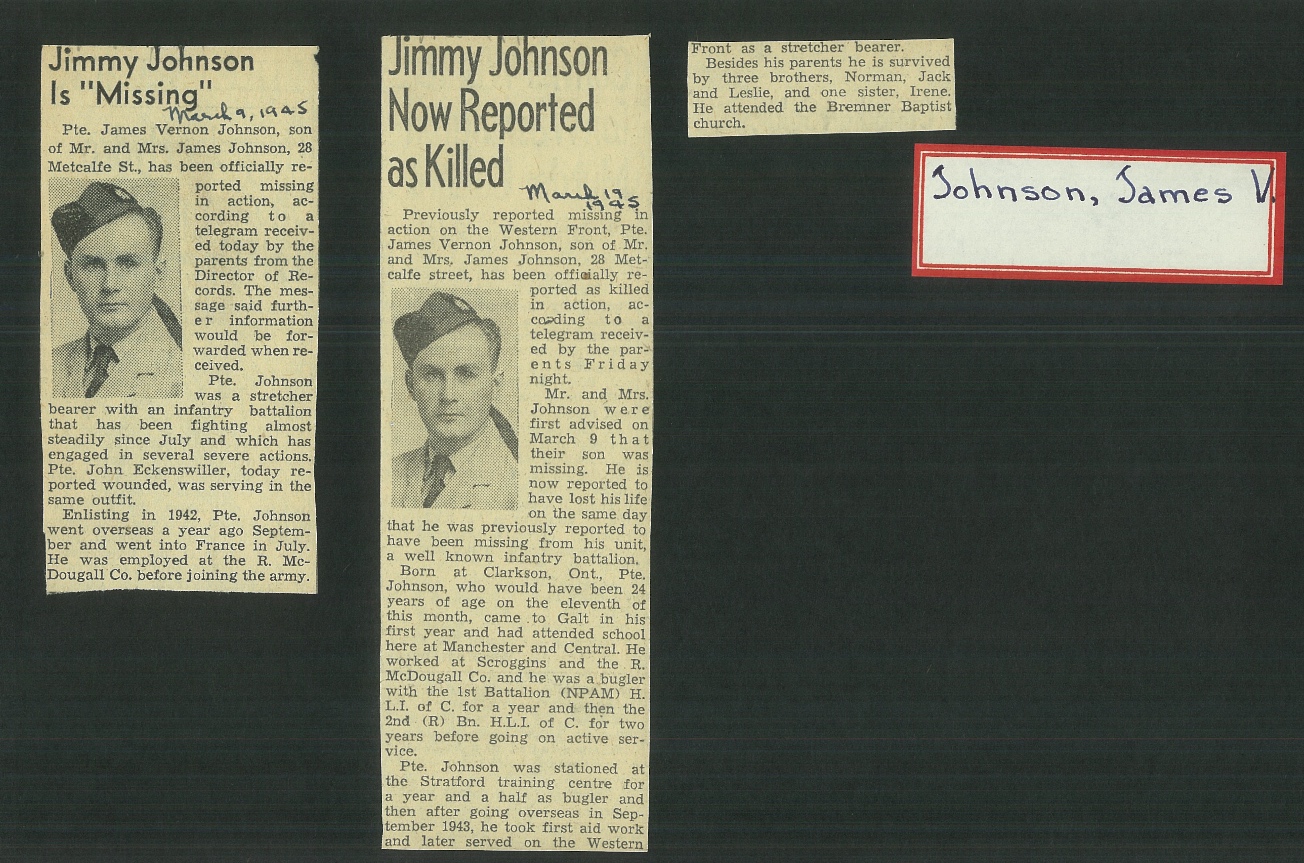 Jimmy Johnson
Is "Missing"
March 9, 1945
Pte. James Vernon Johnson, son
of Mr. and Mrs. James Johnson, 28
Metcalfe St., has been officially re-
ported missing
in action, ac-
cording to a
telegram receiv-
ed today by the
parents from the
Director of Re-
cords. The mes-
sage said furth-
er information
would be for-
warded when re-
ceived.
Pte. Johnson
was a stretcher
bearer with an infantry battalion
that has been fighting almost
steadily since July and which has
engaged in several severe actions.
Pte. John Eckenswiller, today re-
ported wounded, was serving in the
same outfit.
Enlisting in 1942, Pte. Johnson
went overseas a year ago Septem-
ber and went into France in July.
He was employed at the R. Mc-
Dougall Co. before joining the army.
Jimmy Johnson
Now Reported
as Killed
March 19
1945
Previously reported missing in
action on the Western Front, Pte.
James Vernon Johnson, son of Mr.
and Mrs. James Johnson, 28 Met-
calfe street, has been officially re-
ported as killed
in action, ac-
cording to a
telegram receiv-
ed by the par-
ents Friday
night.
Mr. and Mrs.
Johnson were
first advised on
March 9 that
their son was
missing. He is
now reported to
have lost his life
on the same day
that he was previously reported to
have been missing from his unit,
a well known infantry battalion.
Born at Clarkson, Ont., Pte.
Johnson, who would have been 24
years of age on the eleventh of
this month, came to Galt in his
first year and had attended school
here at Manchester and Central. He
worked at Scroggins and the R.
McDougall Co. and he was a bugler
with the 1st Battalion (NPAM) H.
L.I. of C. for a year and then the
2nd (R) Bn. H.L.I. of C. for two
years before going on active ser-
vice.
Pte. Johnson was stationed at
the Stratford training centre for
a year and a half as bugler and
then after going overseas in Sep-
tember 1943, he took first aid work
and later served on the Western
Front as a stretcher bearer.
Besides his parents he is survived
by three brothers, Norman, Jack
and Leslie, and one sister, Irene.
He attended the Bremner Baptist
church.
Johnson, James V.